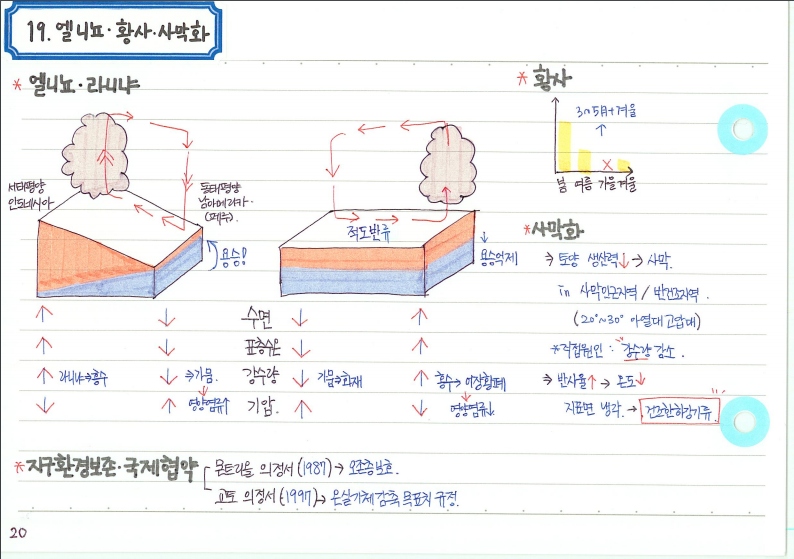 19. 엘니뇨·황사·사막화
* 엘니뇨·라니냐
서태평양
인도네시아
동태평양
남아메리카·
(페루)
용승!
적도반류
↓
용승억제
↑ ↓ 수면 ↓ ↑
↑ ↓ 표층수온 ↓ ↑
↑ 라니냐→홍수 ↓ ⇒가뭄. 강수량 ↓ 가뭄⇒화재 ↑ 홍수→어장황폐
↓ ↑ 영양염류↑ 기압. ↑ ↓ 영양염류↓
* 황사
3~5月+겨울
↑
×
봄 여름 가을 겨울
*사막화
⇒ 토양 생산력↓→ 사막.
in 사막인근지역 / 반건조지역.
(20°~30° 아열대 고압대)
*직접원인 : "강수량 감소.
⇒ 반사율↑ → 온도↓
지표면 냉각. → 건조한하강기류.
*지구환경보존·국제협약
몬트리올 의정서 (1987) → 오존층보호.
교토 의정서 (1997)→ 온실가체감축 목표치 규정.
20